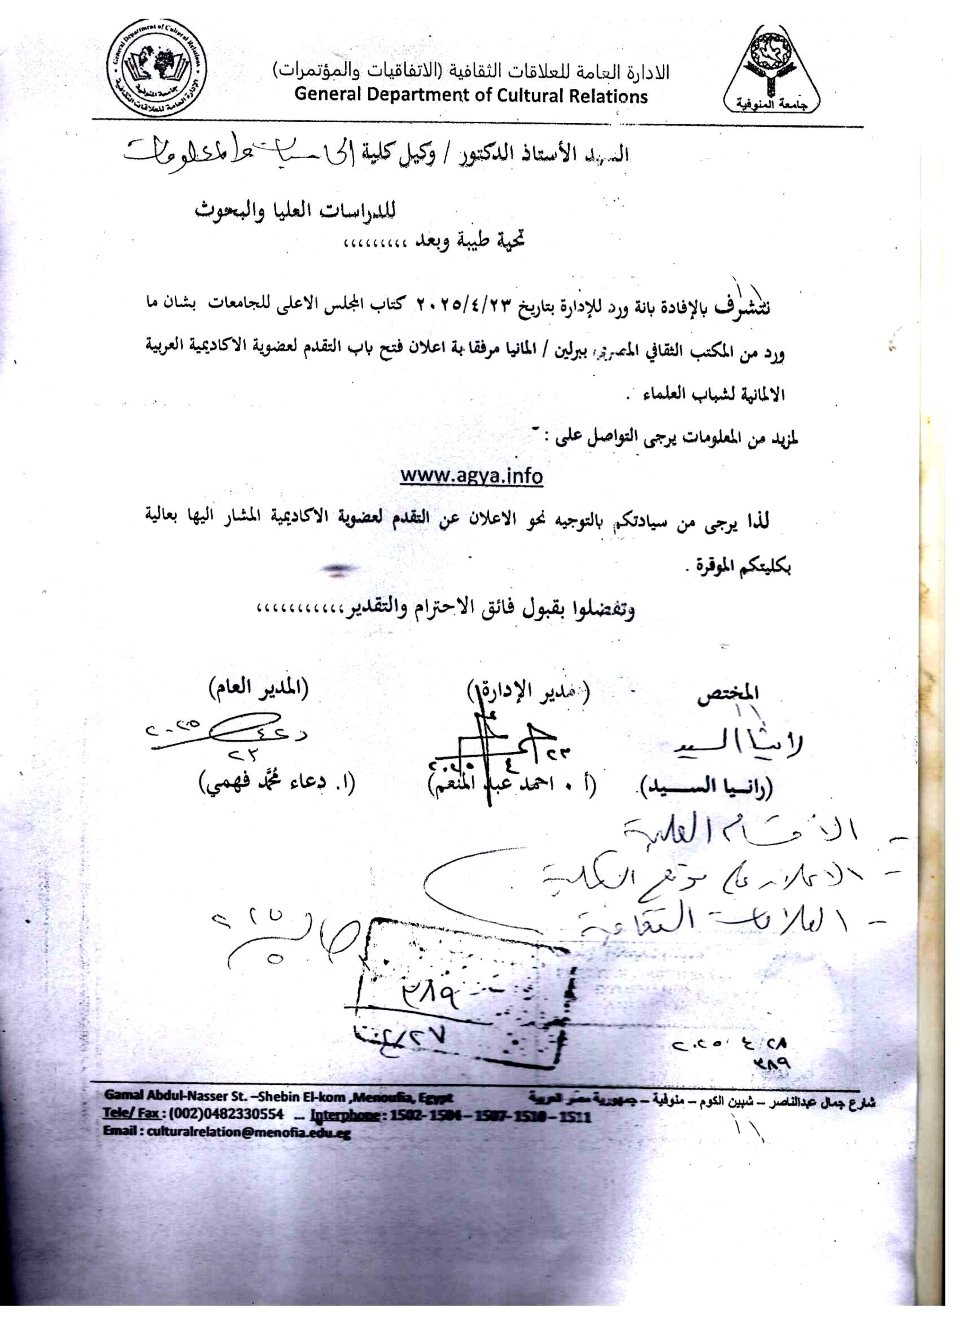 General Department of Cultural Relations
جامعة المنوفية
الإدارة العامة للعلاقات الثقافية
جامعة المنوفية
الادارة العامة للعلاقات الثقافية (الاتفاقيات والمؤتمرات)
General Department of Cultural Relations
السيد الأستاذ الدكتور / وكيل كلية الحاسبات والمعلومات
للدراسات العليا والبحوث
تحية طيبة وبعد ,,,,,,,,,
نتشرف بالإفادة بانة ورد للإدارة بتاريخ ٢٠٢٥/٤/٢٣ كتاب المجلس الاعلى للجامعات بشان ما
ورد من المكتب الثقافي المصرى ببرلين / المانيا مرفقا بة اعلان فتح باب التقدم لعضوية الاكاديمية العربية
الالمانية لشباب العلماء .
لمزيد من المعلومات يرجى التواصل على : -
www.agya.info
لذا يرجى من سيادتكم بالتوجيه نحو الاعلان عن التقدم لعضوية الاكاديمية المشار اليها بعالية
بكليتكم الموقرة .
وتفضلوا بقبول فائق الاحترام والتقدير,,,,,,,,,,,
المختص
(مدير الإدارة)
(المدير العام)
رانيا السيد
٢٣ ٤ ٢٠٢٥
٢٣
٢٠٢٥
(رانيا السيد)
(أ . احمد عبد المنعم)
(ا. دعاء محمد فهمي)
- الأقسام العلمية
- الاعلان على موقع الكلية
- العلاقات الثقافية
٣٨٩
٤/٢٧
٢٨ ٤ ٢٠٢٥
٣٨٩
Gamal Abdul-Nasser St. –Shebin El-kom ,Menoufia, Egypt
شارع جمال عبدالناصر – شبين الكوم – منوفية – جمهورية مصر العربية
Tele/ Fax : (002)0482330554 ... Interphone : 1502- 1504 – 1507- 1510 – 1511
Email : culturalrelation@menofia.edu.eg